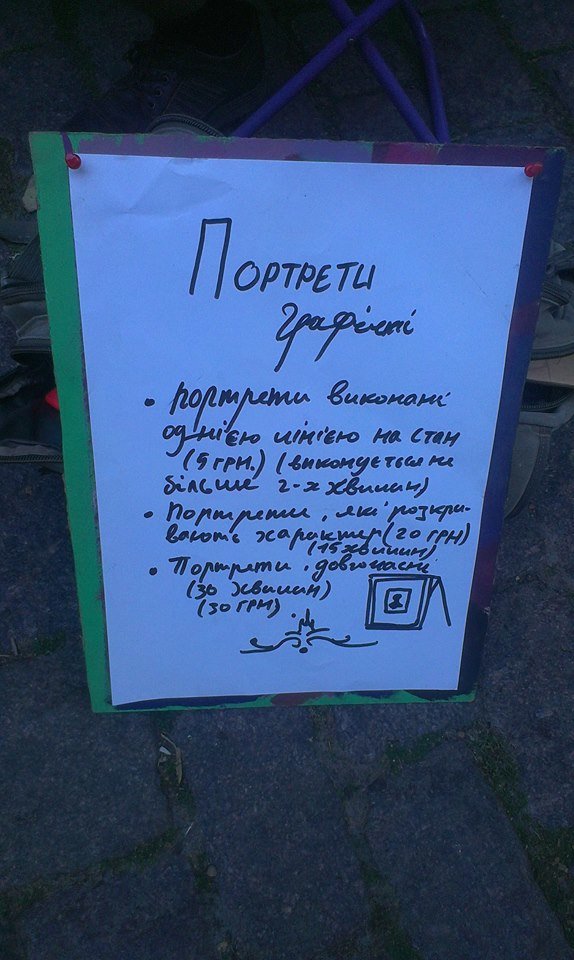 Портрети
Графічні
• портрети виконані
однією лінією на стан
(5 грн.) (виконується не
більше 2-х хвилин)
• Портрети, які розкри-
вають характер (20 грн)
(15 хвилин)
• Портрети довгочасні
(30 хвилин)
(30 грн)